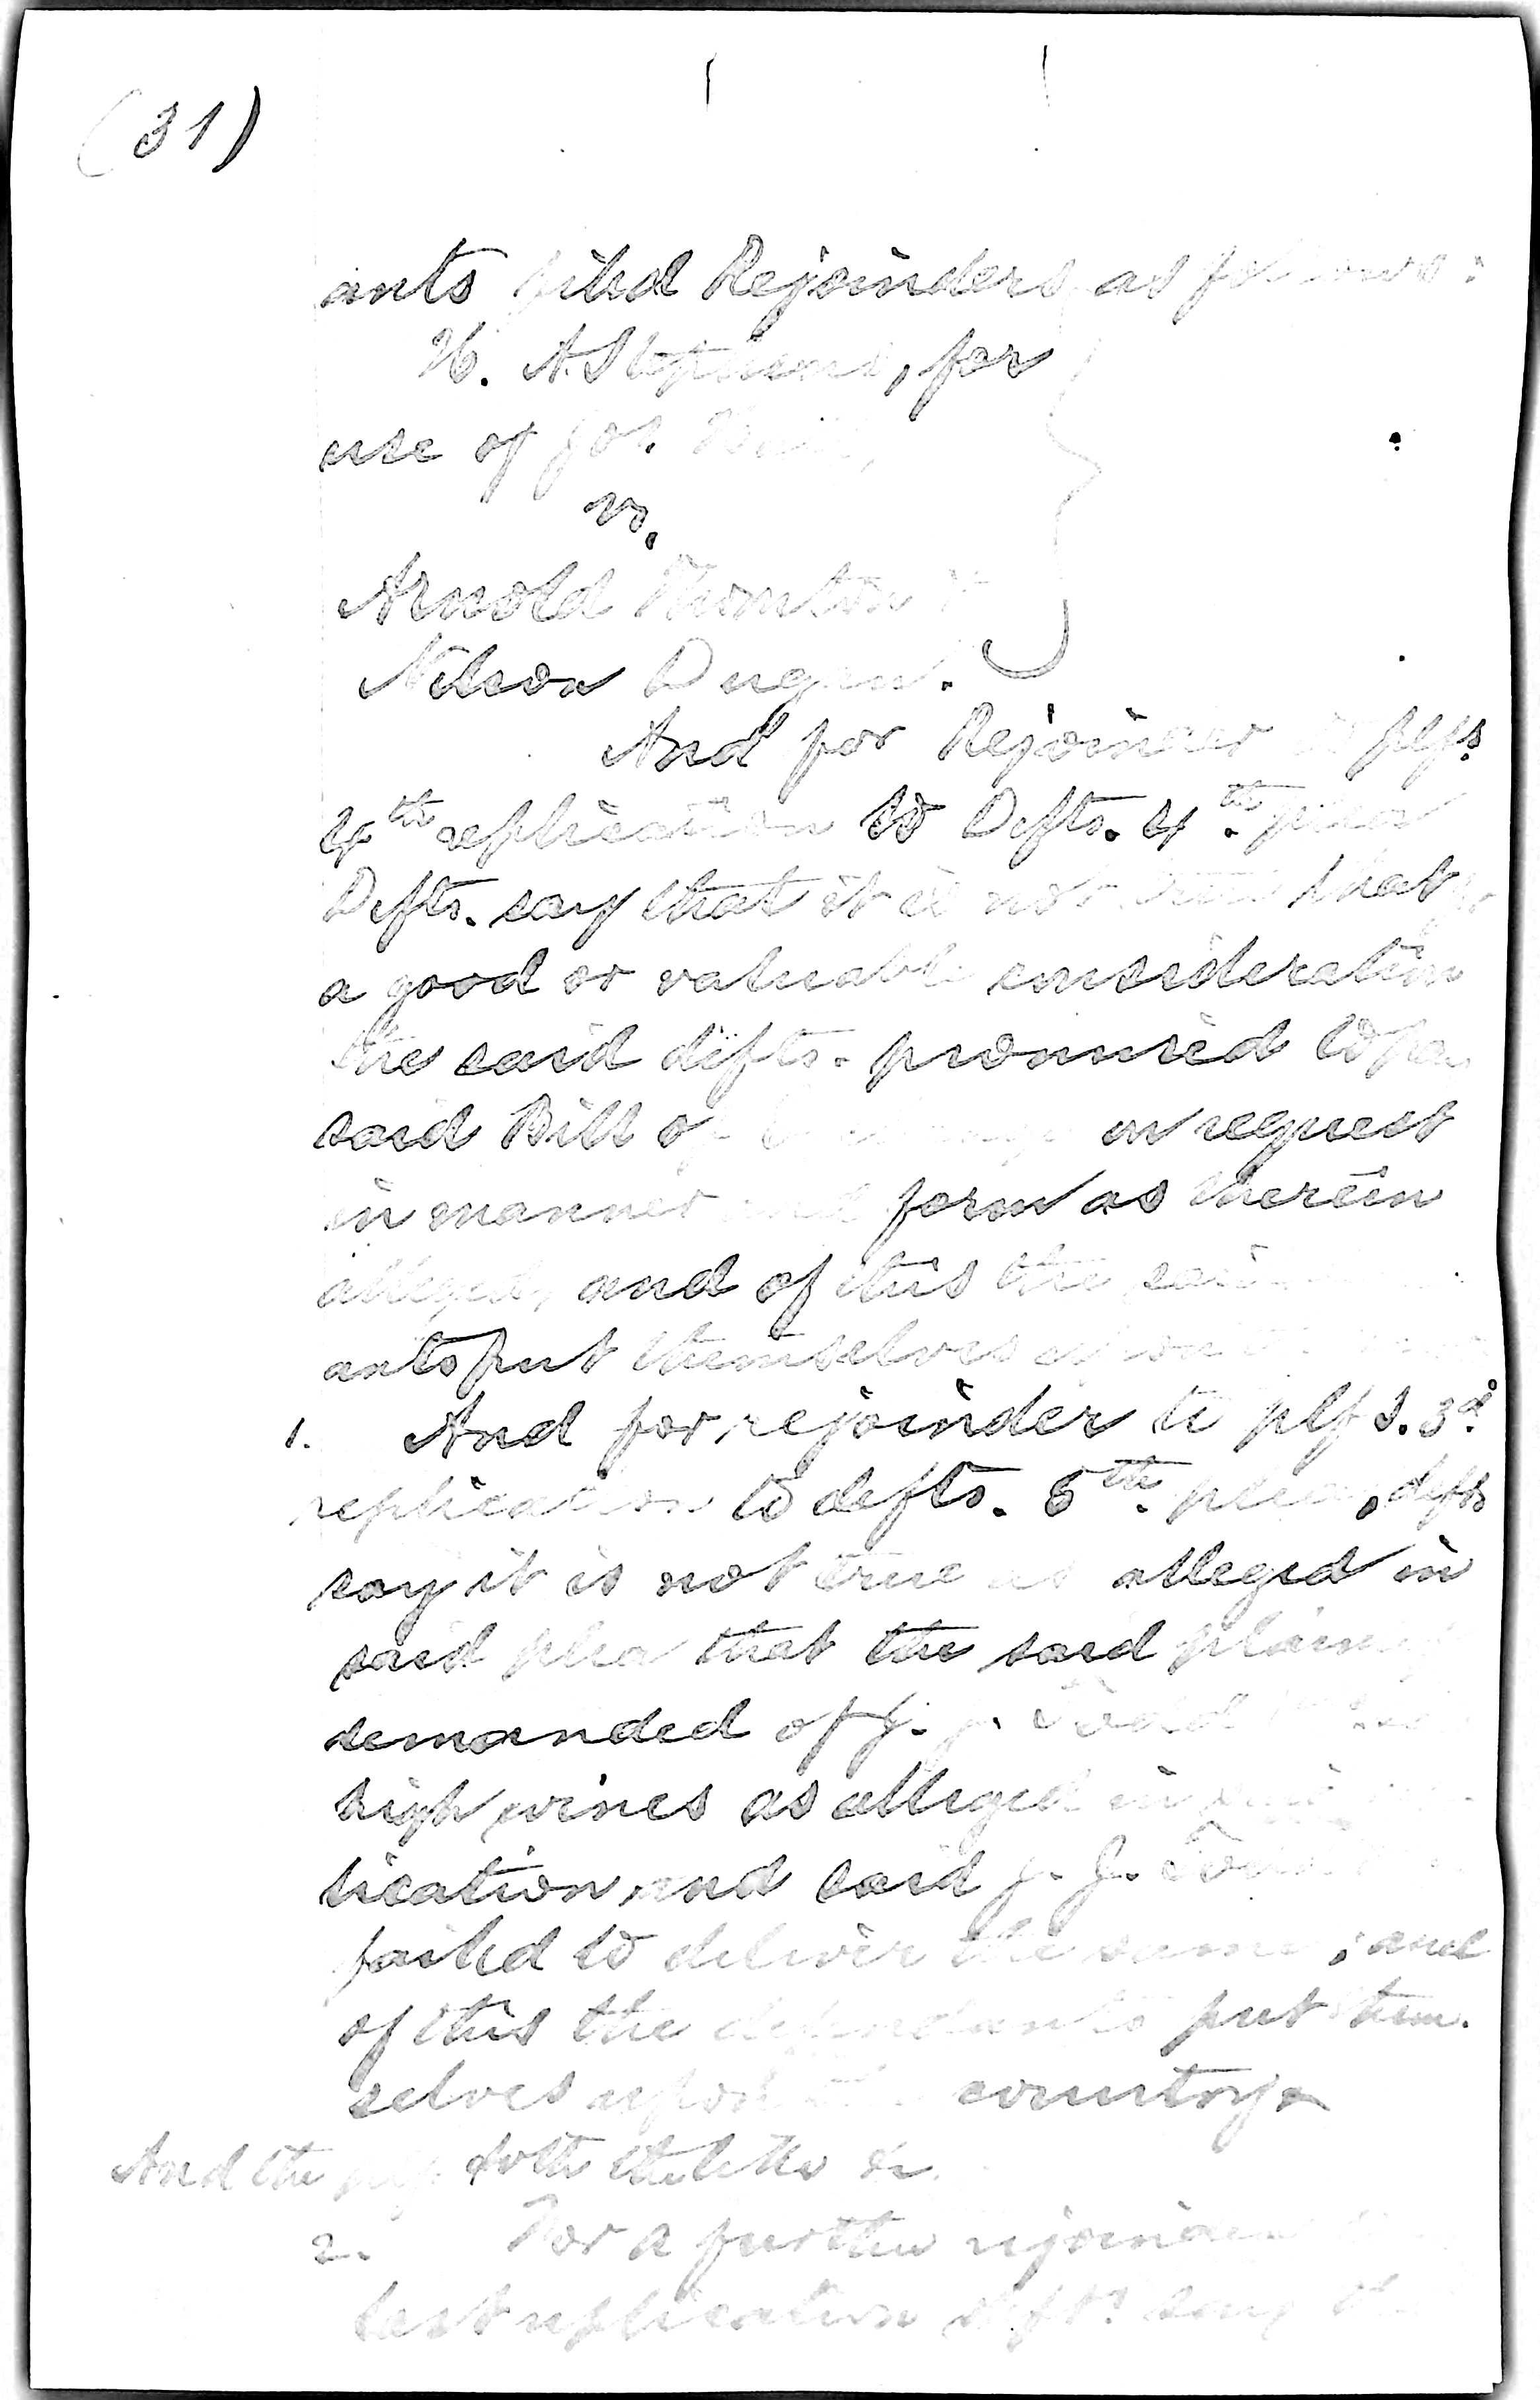 (31)
ants filed Rejoinders as follows:
H. A. Stephens, for
use of Jos.
vs.
Arnold Thornton &
Nelson Dugan.
And for Rejoinder to plfs.
4th replication to Defts. 4th. plea
Defts. say that it is not true that
a good or valuable consideration
the said defts. promised to pa
said Bill of on request
in manner and form as therein
alleged, and of this the said
ants put themselves upon
1. And for rejoinder to plfs. 3d.
replication to defts. 5th. plea, defts
say it is not true as alleged in
said plea that the said plain
demanded of J. J. Todd
high wines as alleged in
lication, and said J. J. Todd
failed to deliver the same; and
of this the defendants put them-
selves upon the country &
And the plf. doth the like &c.
2. For a further rejoinder
last replication defts. say